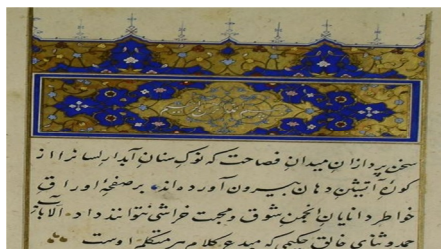 سخن پردازان میدان فصاحت که نوک سنان آبدار لسانرا از
کورهٔ آتشین دهان بیرون آورده‌اند بر صفحهٔ اوراق
خواطر دانایان انجمن شوق و محبت خراشی نتوانند داد الا بآب
حمد و ثنای خالق حکیمی که مبدع کلام هر متکلم اوست